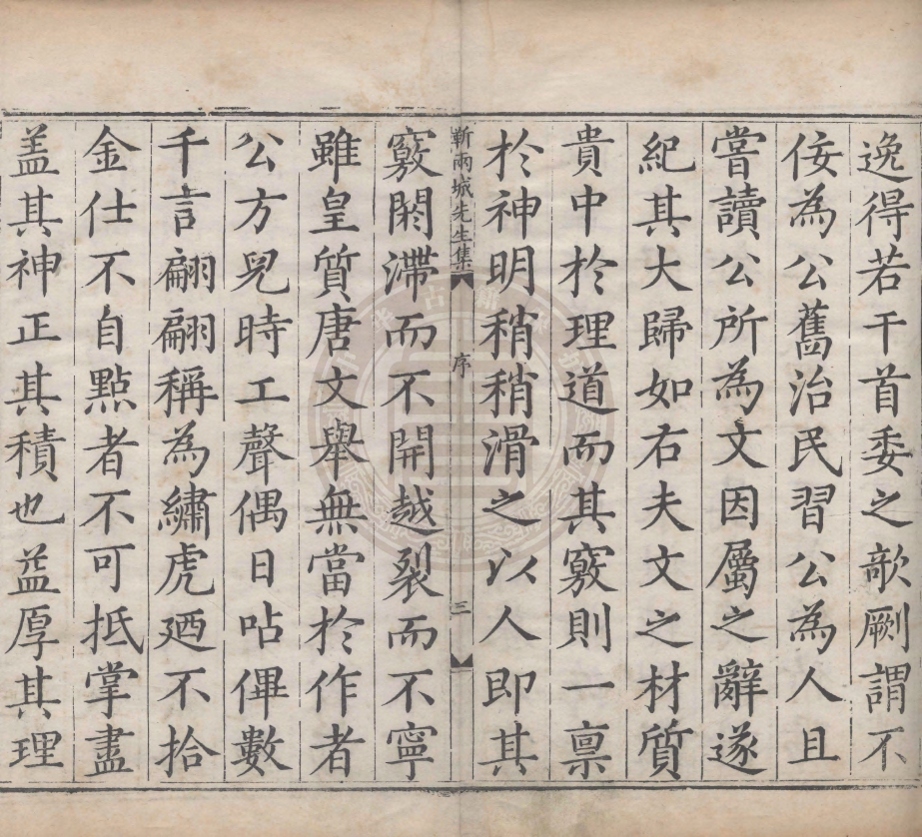 逸得若干首委之歆劂謂不
佞為公舊治民習公為人且
嘗讀公所為文因屬之辭遂
紀其大歸如右夫文之材質
貴中於理道而其竅則一禀
於神明稍稍滑之以人即其
靳兩城先生集 序 三
竅閼滯而不開越裂而不寧
雖皇質唐文舉無當於作者
公方兒時工聲偶日呫俾數
千言翩翩稱為繡虎廼不拾
金仕不自點者不可抵掌盡
盖其神正其積也益厚其理